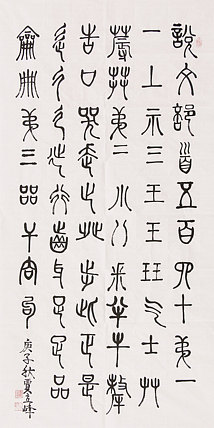 說文部首五百四十弟一
一上示三王玉玨气士艸
蓐茻弟二小八釆半牛犛
告口哭走止癶步此正是
辵彳廴㢟行齒牙足疋品
龠冊弟三㗊干谷㕯
庚子秋夏峰